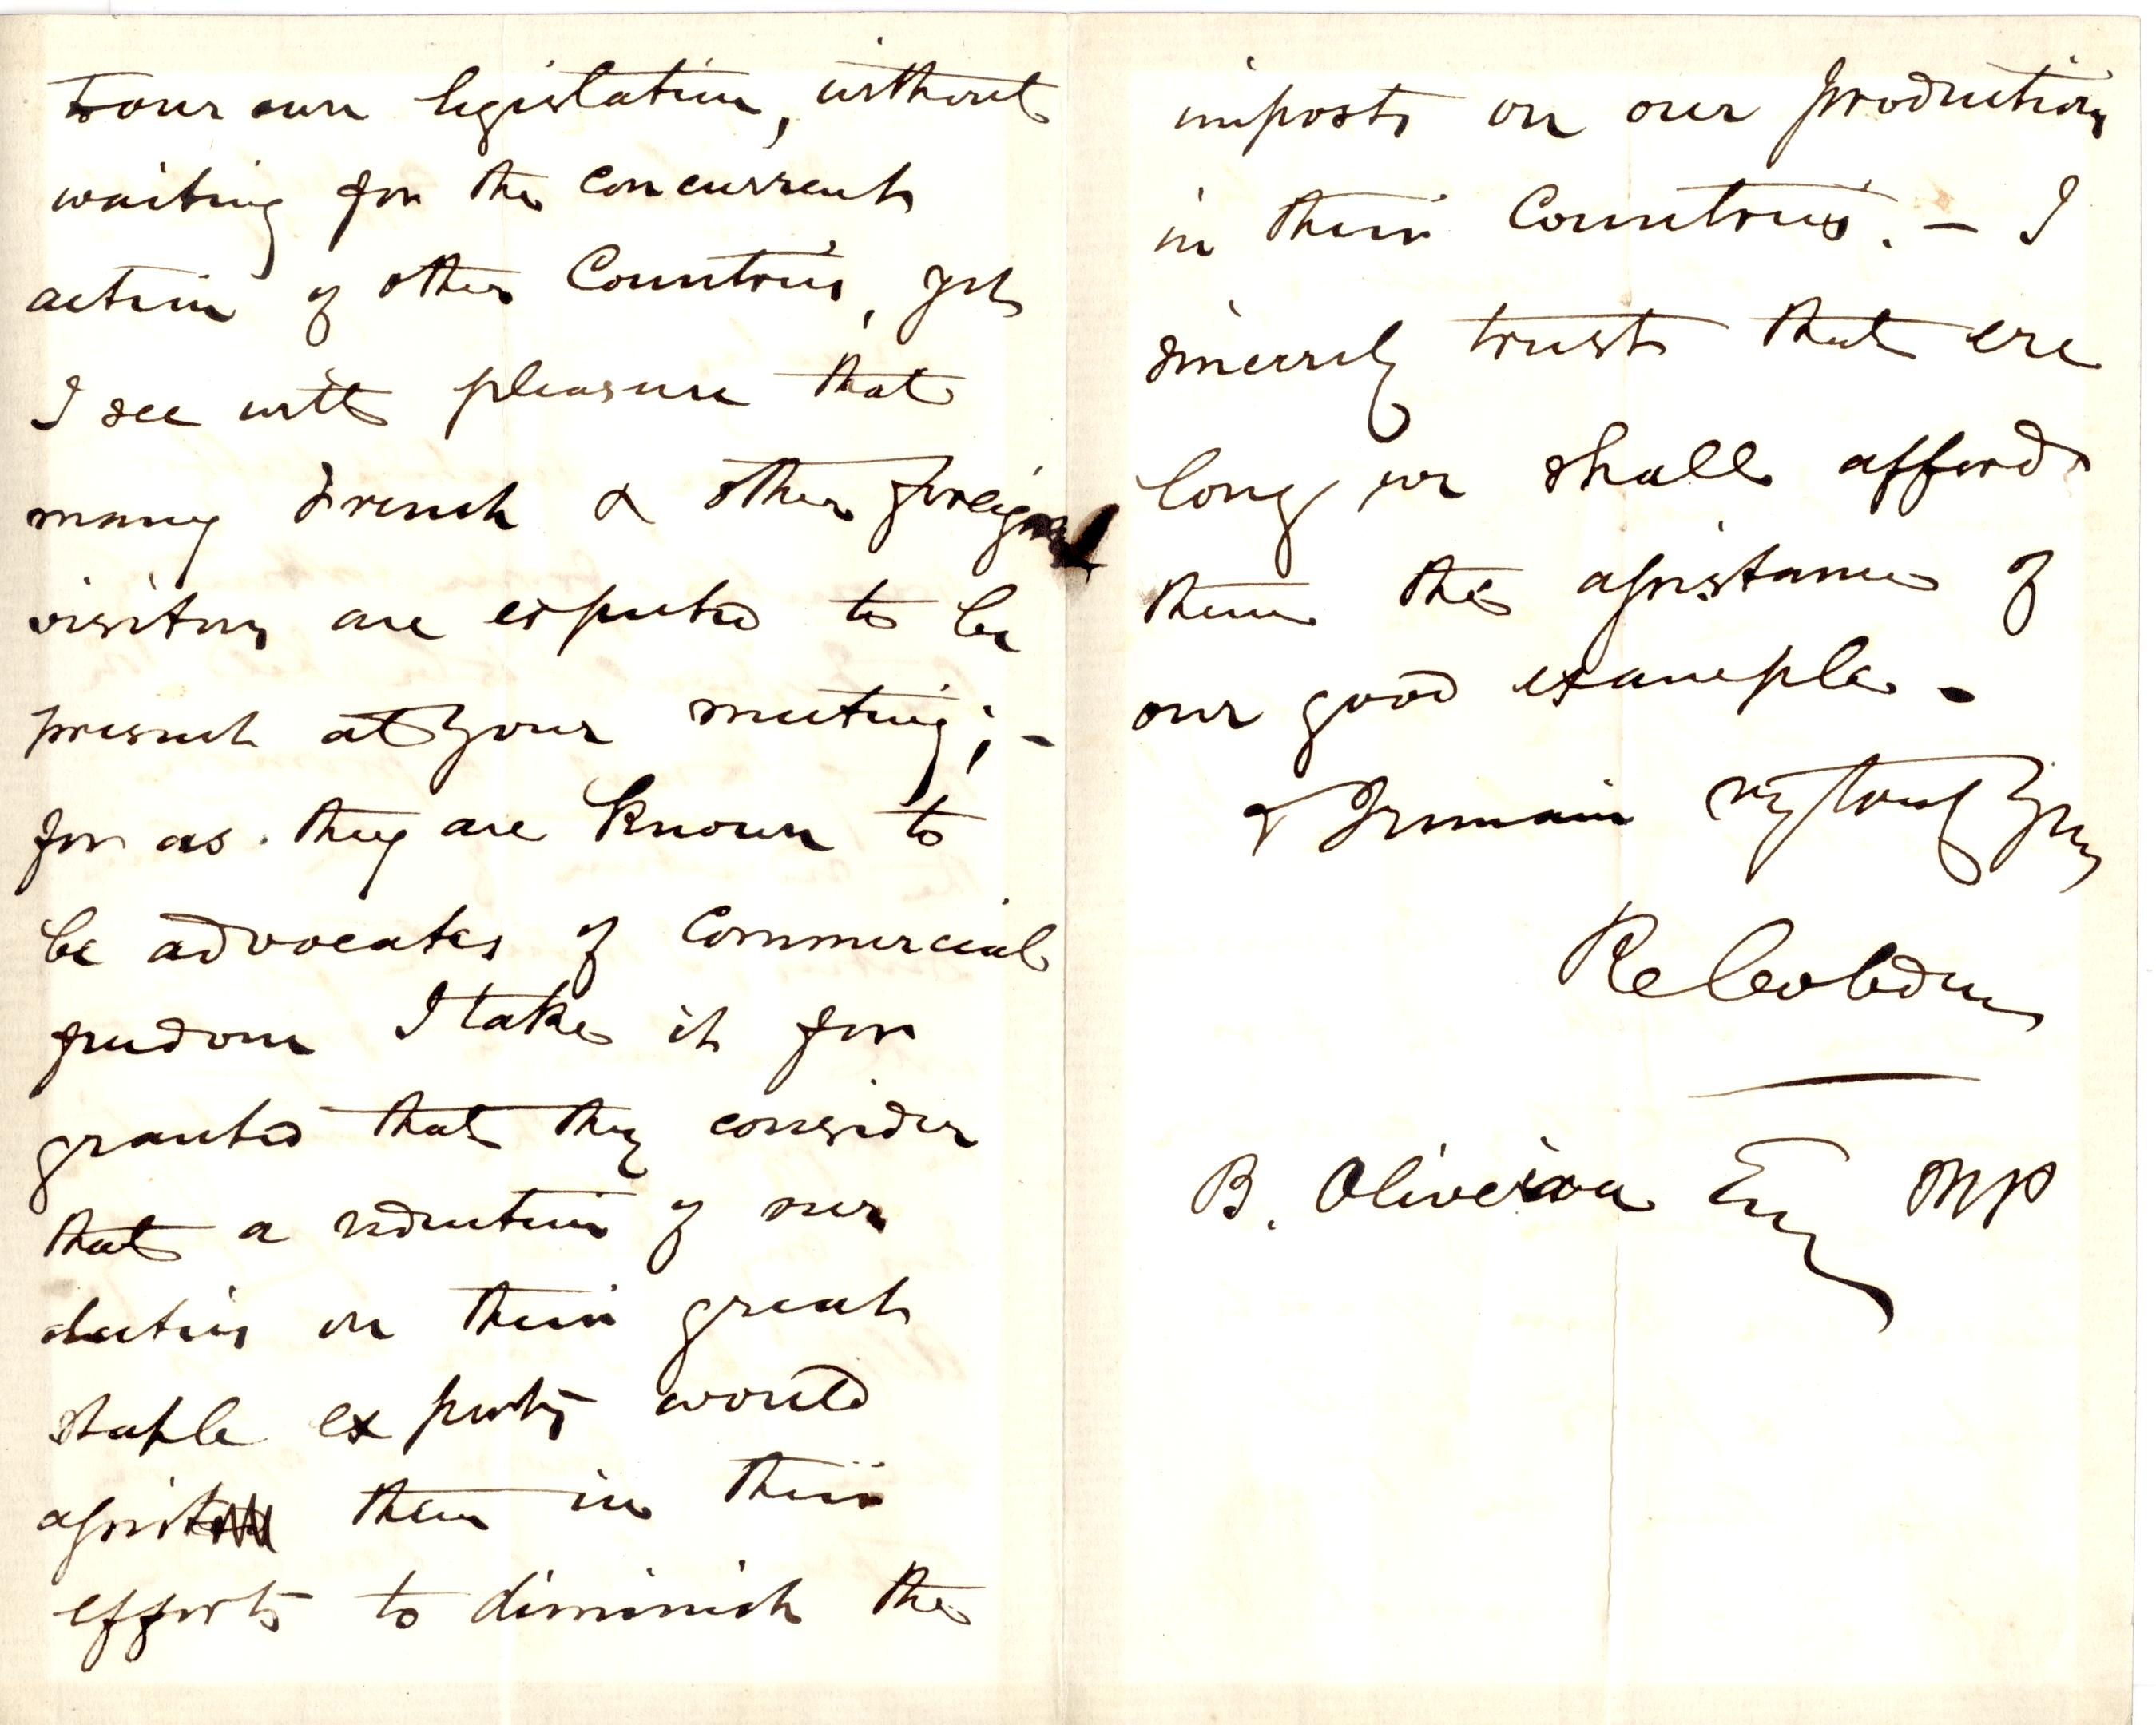 to our own legislation, without
waiting for the concurrent
action of other Countries, yet
I see with pleasure that
many French & other foreign
visitors are expected to be
present at your meeting; –
for as they are known to
be advocates of Commercial
freedom I take it for
granted that they consider
that a reduction of our
duties on their great
staple exports would
assist them in their
efforts to diminish the
imposts on our productions
in their Countries. – I
sincerely trust that ere
long we shall afford
them the assistance of
our good example –
& I remain very truly Yours
R Cobden
B. Oliveira Esq MP